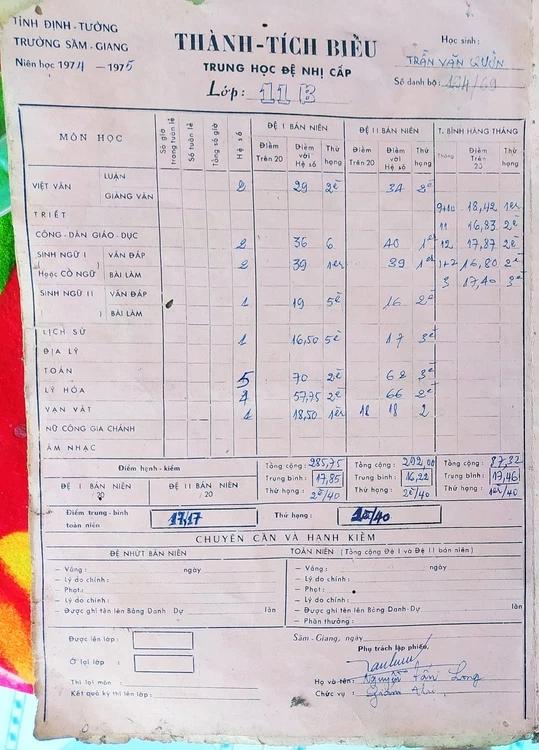 TỈNH ĐỊNH-TƯỜNG
TRƯỜNG SẦM-GIANG
Niên học 1974 — 1975
THÀNH-TÍCH BIỂU
TRUNG HỌC ĐỆ NHỊ CẤP
Lớp: 11B
Học sinh:
TRẦN VĂN
Số danh bộ: 124/69
MÔN HỌC Số giờ trong tuần lễ Số tuần lễ Tổng số giờ Hệ số ĐỆ I BÁN NIÊN ĐỆ II BÁN NIÊN T. BÌNH HÀNG THÁNG
Điểm Trên 20 Điểm với Hệ số Thứ hạng Điểm Trên 20 Điểm với Hệ số Thứ hạng Tháng Điểm Trên 20 Thứ hạng
VIỆT VĂN LUẬN
GIẢNG VĂN 2 29 2è 34 2è
TRIẾT 9+10 18,42 1er
11 16,83 2è
CÔNG-DÂN GIÁO-DỤC 2 36 6 40 1er 12 17,87 2è
SINH NGỮ I VẤN ĐÁP 2 39 1er 39 1er 1+2 16,80 3è
Hoặc CỔ NGỮ ) BÀI LÀM 3 17,40 3è
SINH NGỮ II VẤN ĐÁP 1 19 5è 16 2è
) BÀI LÀM
LỊCH SỬ 1 16,50 5è 17 3è
ĐỊA LÝ
TOÁN 5 70 2è 68 3è
LÝ HÓA 4 57,75 2è 66 2è
VẠN VẬT 1 18,50 1er 18 18 2
NỮ CÔNG GIA CHÁNH
ÂM NHẠC
Điểm hạnh-kiểm Tổng cộng: 285,75 Tổng cộng: 292,00 Tổng cộng: 87,32
ĐỆ I BÁN NIÊN ĐỆ II BÁN NIÊN Trung bình: 17,85 Trung bình: 16,22 Trung bình: 17,46
/20 /20 Thứ hạng: 2è/40 Thứ hạng: 2è/40 Thứ hạng: 1er/40
Điểm trung-bình toàn niên 17,17 Thứ hạng: /40
CHUYÊN CẦN VÀ HẠNH KIỂM
ĐỆ NHỨT BÁN NIÊN TOÀN NIÊN (Tổng cộng Đệ I và Đệ II bán niên)
— Vắng: ngày — Vắng: ngày
— Lý do chính: — Lý do chính:
— Phạt: — Phạt:
— Lý do chính: — Lý do chính:
— Được ghi tên lên Bảng Danh Dự lần — Được ghi tên lên Bảng Danh-Dự lần
— Phần thưởng:
Được lên lớp: Sầm-Giang, ngày
Phụ trách lập phiếu,
Ở lại lớp:
Thi lại môn: Họ và tên: Nguyễn Tấn Long
Kết quả kỳ thi lên lớp: Chức vụ: Giám thị